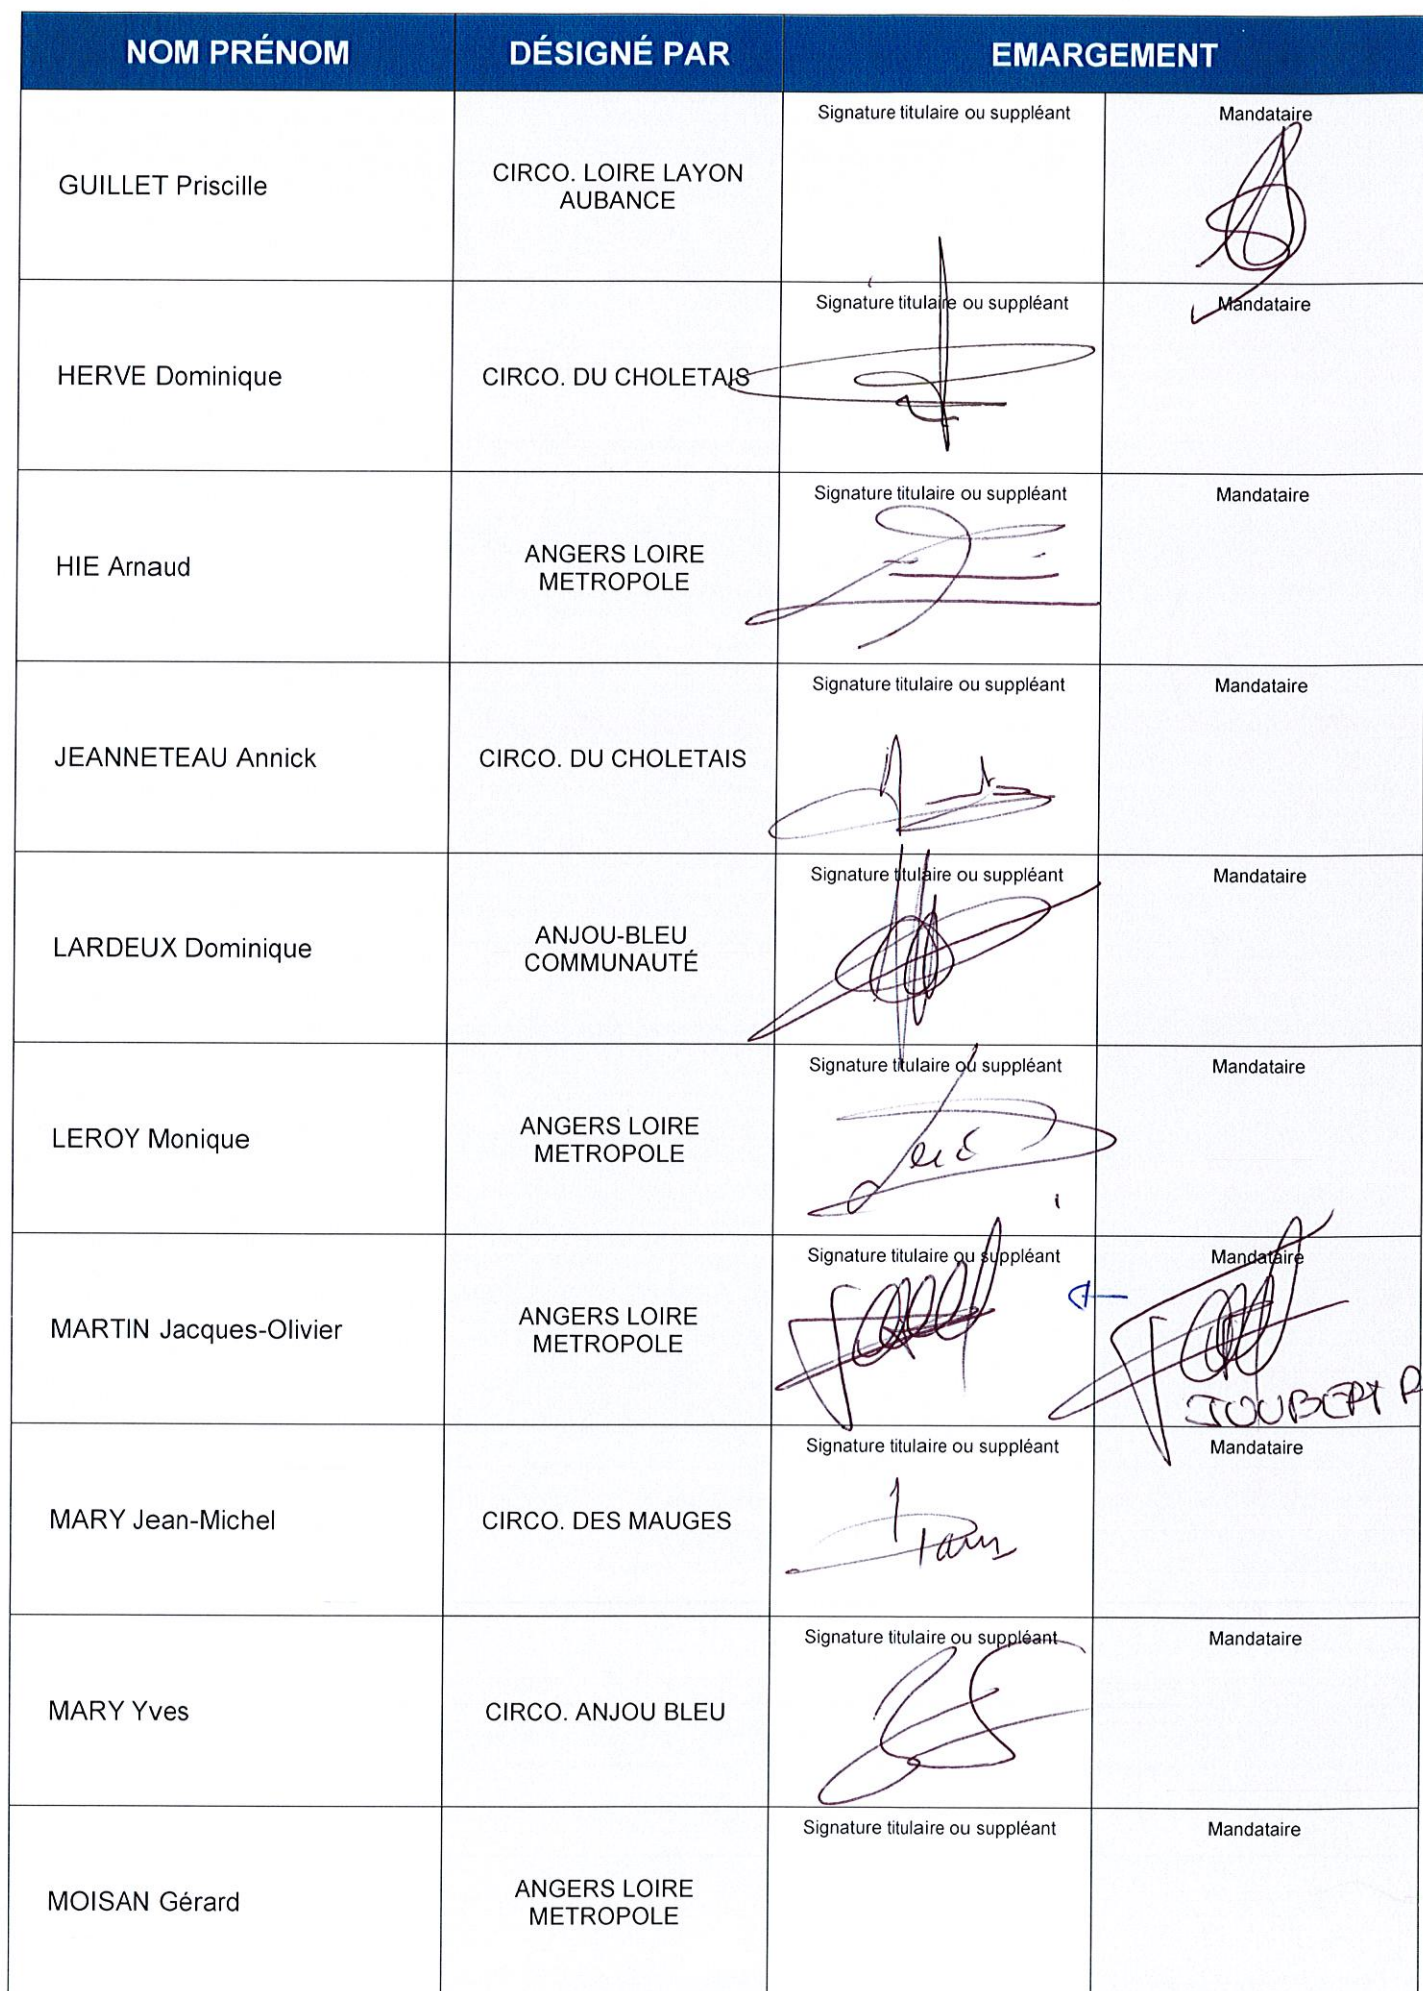 NOM PRÉNOM DÉSIGNÉ PAR EMARGEMENT
Signature titulaire ou suppléant Mandataire
GUILLET Priscille
CIRCO. LOIRE LAYON
AUBANCE
Signature titulaire ou suppléant Mandataire
HERVE Dominique
CIRCO. DU CHOLETAIS
Signature titulaire ou suppléant Mandataire
HIE Arnaud
ANGERS LOIRE
METROPOLE
Signature titulaire ou suppléant Mandataire
JEANNETEAU Annick
CIRCO. DU CHOLETAIS
Signature titulaire ou suppléant Mandataire
LARDEUX Dominique
ANJOU-BLEU
COMMUNAUTÉ
Signature titulaire ou suppléant Mandataire
LEROY Monique
ANGERS LOIRE
METROPOLE
Signature titulaire ou suppléant Mandataire
MARTIN Jacques-Olivier
ANGERS LOIRE
METROPOLE
JOUBERT P
Signature titulaire ou suppléant Mandataire
MARY Jean-Michel
CIRCO. DES MAUGES
Signature titulaire ou suppléant Mandataire
MARY Yves
CIRCO. ANJOU BLEU
Signature titulaire ou suppléant Mandataire
MOISAN Gérard
ANGERS LOIRE
METROPOLE